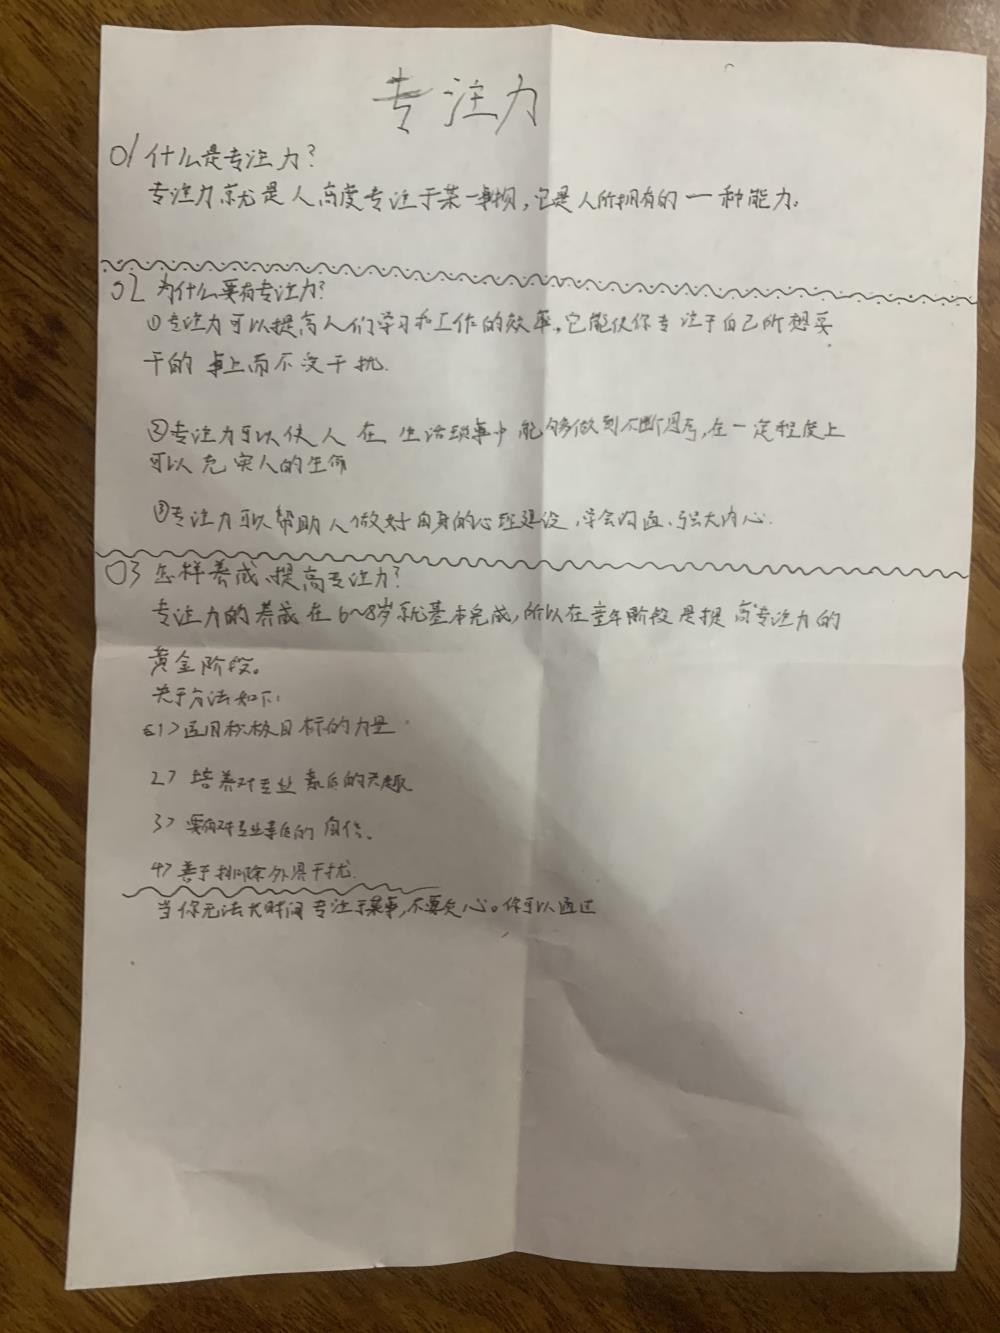 专注力
01 什么是专注力？
专注力就是人高度专注于某一事物，它是人所拥有的一种能力。
02 为什么要有专注力？
①专注力可以提高人们学习和工作的效率，它能使你专注于自己所想要
干的事上而不受干扰.
②专注力可以使人在生活琐事中能够做到不断思考，在一定程度上
可以充实人的生命
③专注力可以帮助人做好自身的心理建设，学会沟通、强大内心.
03 怎样养成、提高专注力？
专注力的养成在6~8岁就基本完成，所以在童年阶段是提高专注力的
黄金阶段。
关于方法如下：
<1>运用积极目标的力量
2> 培养对专业素质的兴趣
3> 要有对专业素质的自信。
4> 善于排除外界干扰.
当你无法长时间专注于某事，不要灰心。你可以通过